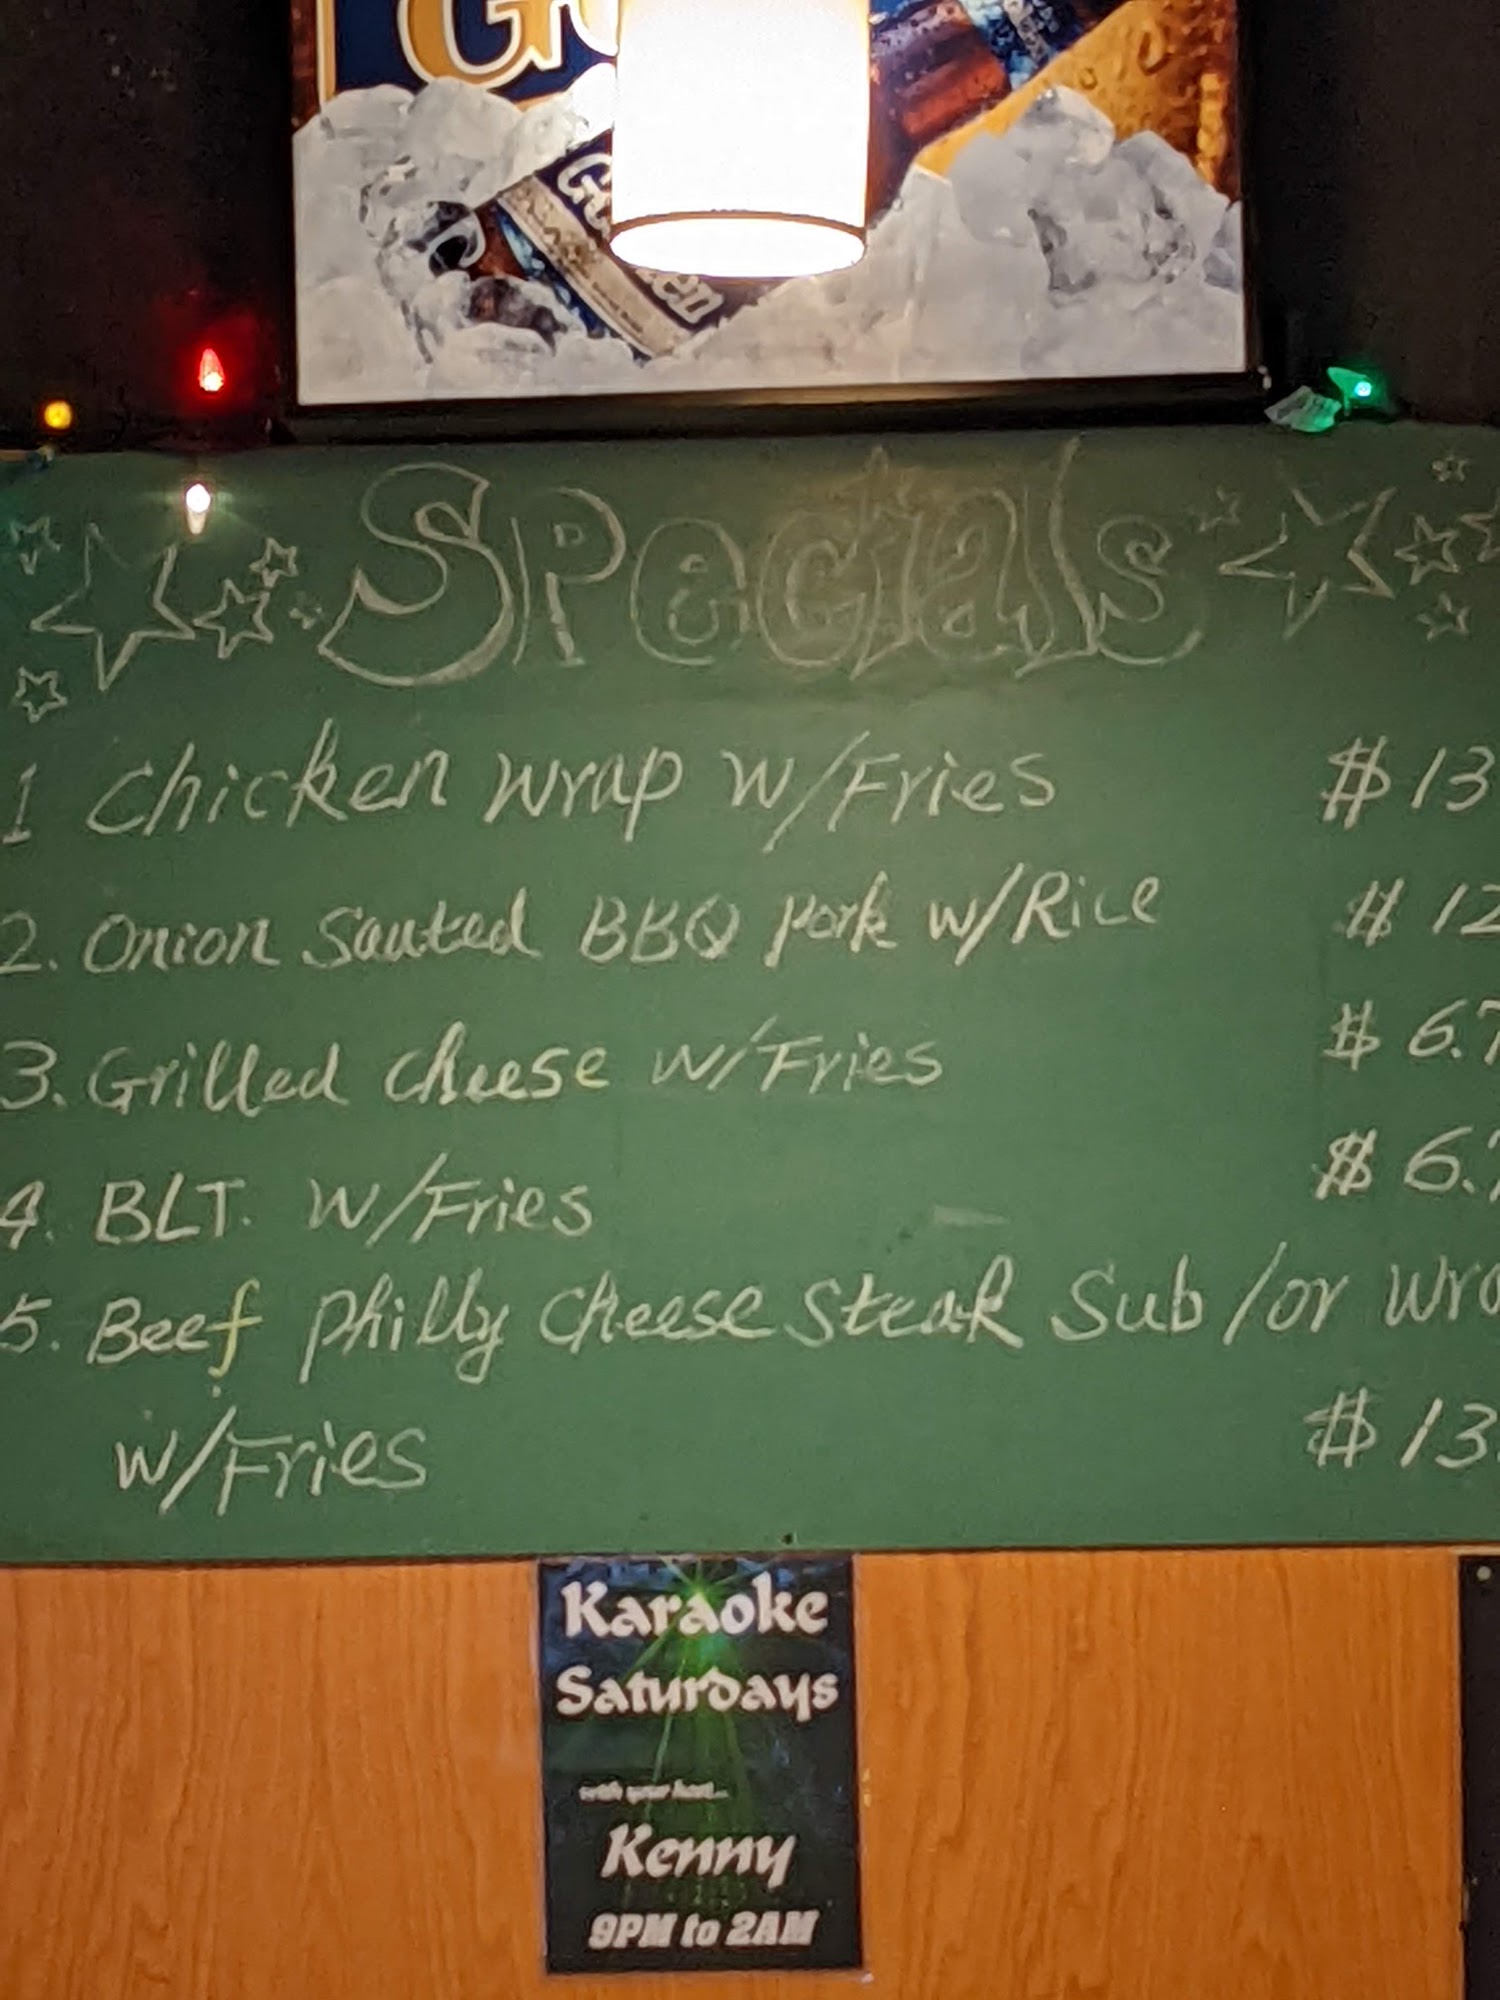 Specials
1 Chicken Wrap w/Fries $13
2. Onion Sauted BBQ Pork w/Rice $12
3. Grilled Cheese w/Fries $6.7
4. BLT. w/Fries $6.7
5. Beef Philly Cheese Steak Sub /or Wra
w/Fries $13.
Karaoke
Saturdays
with your host...
Kenny
9PM to 2AM